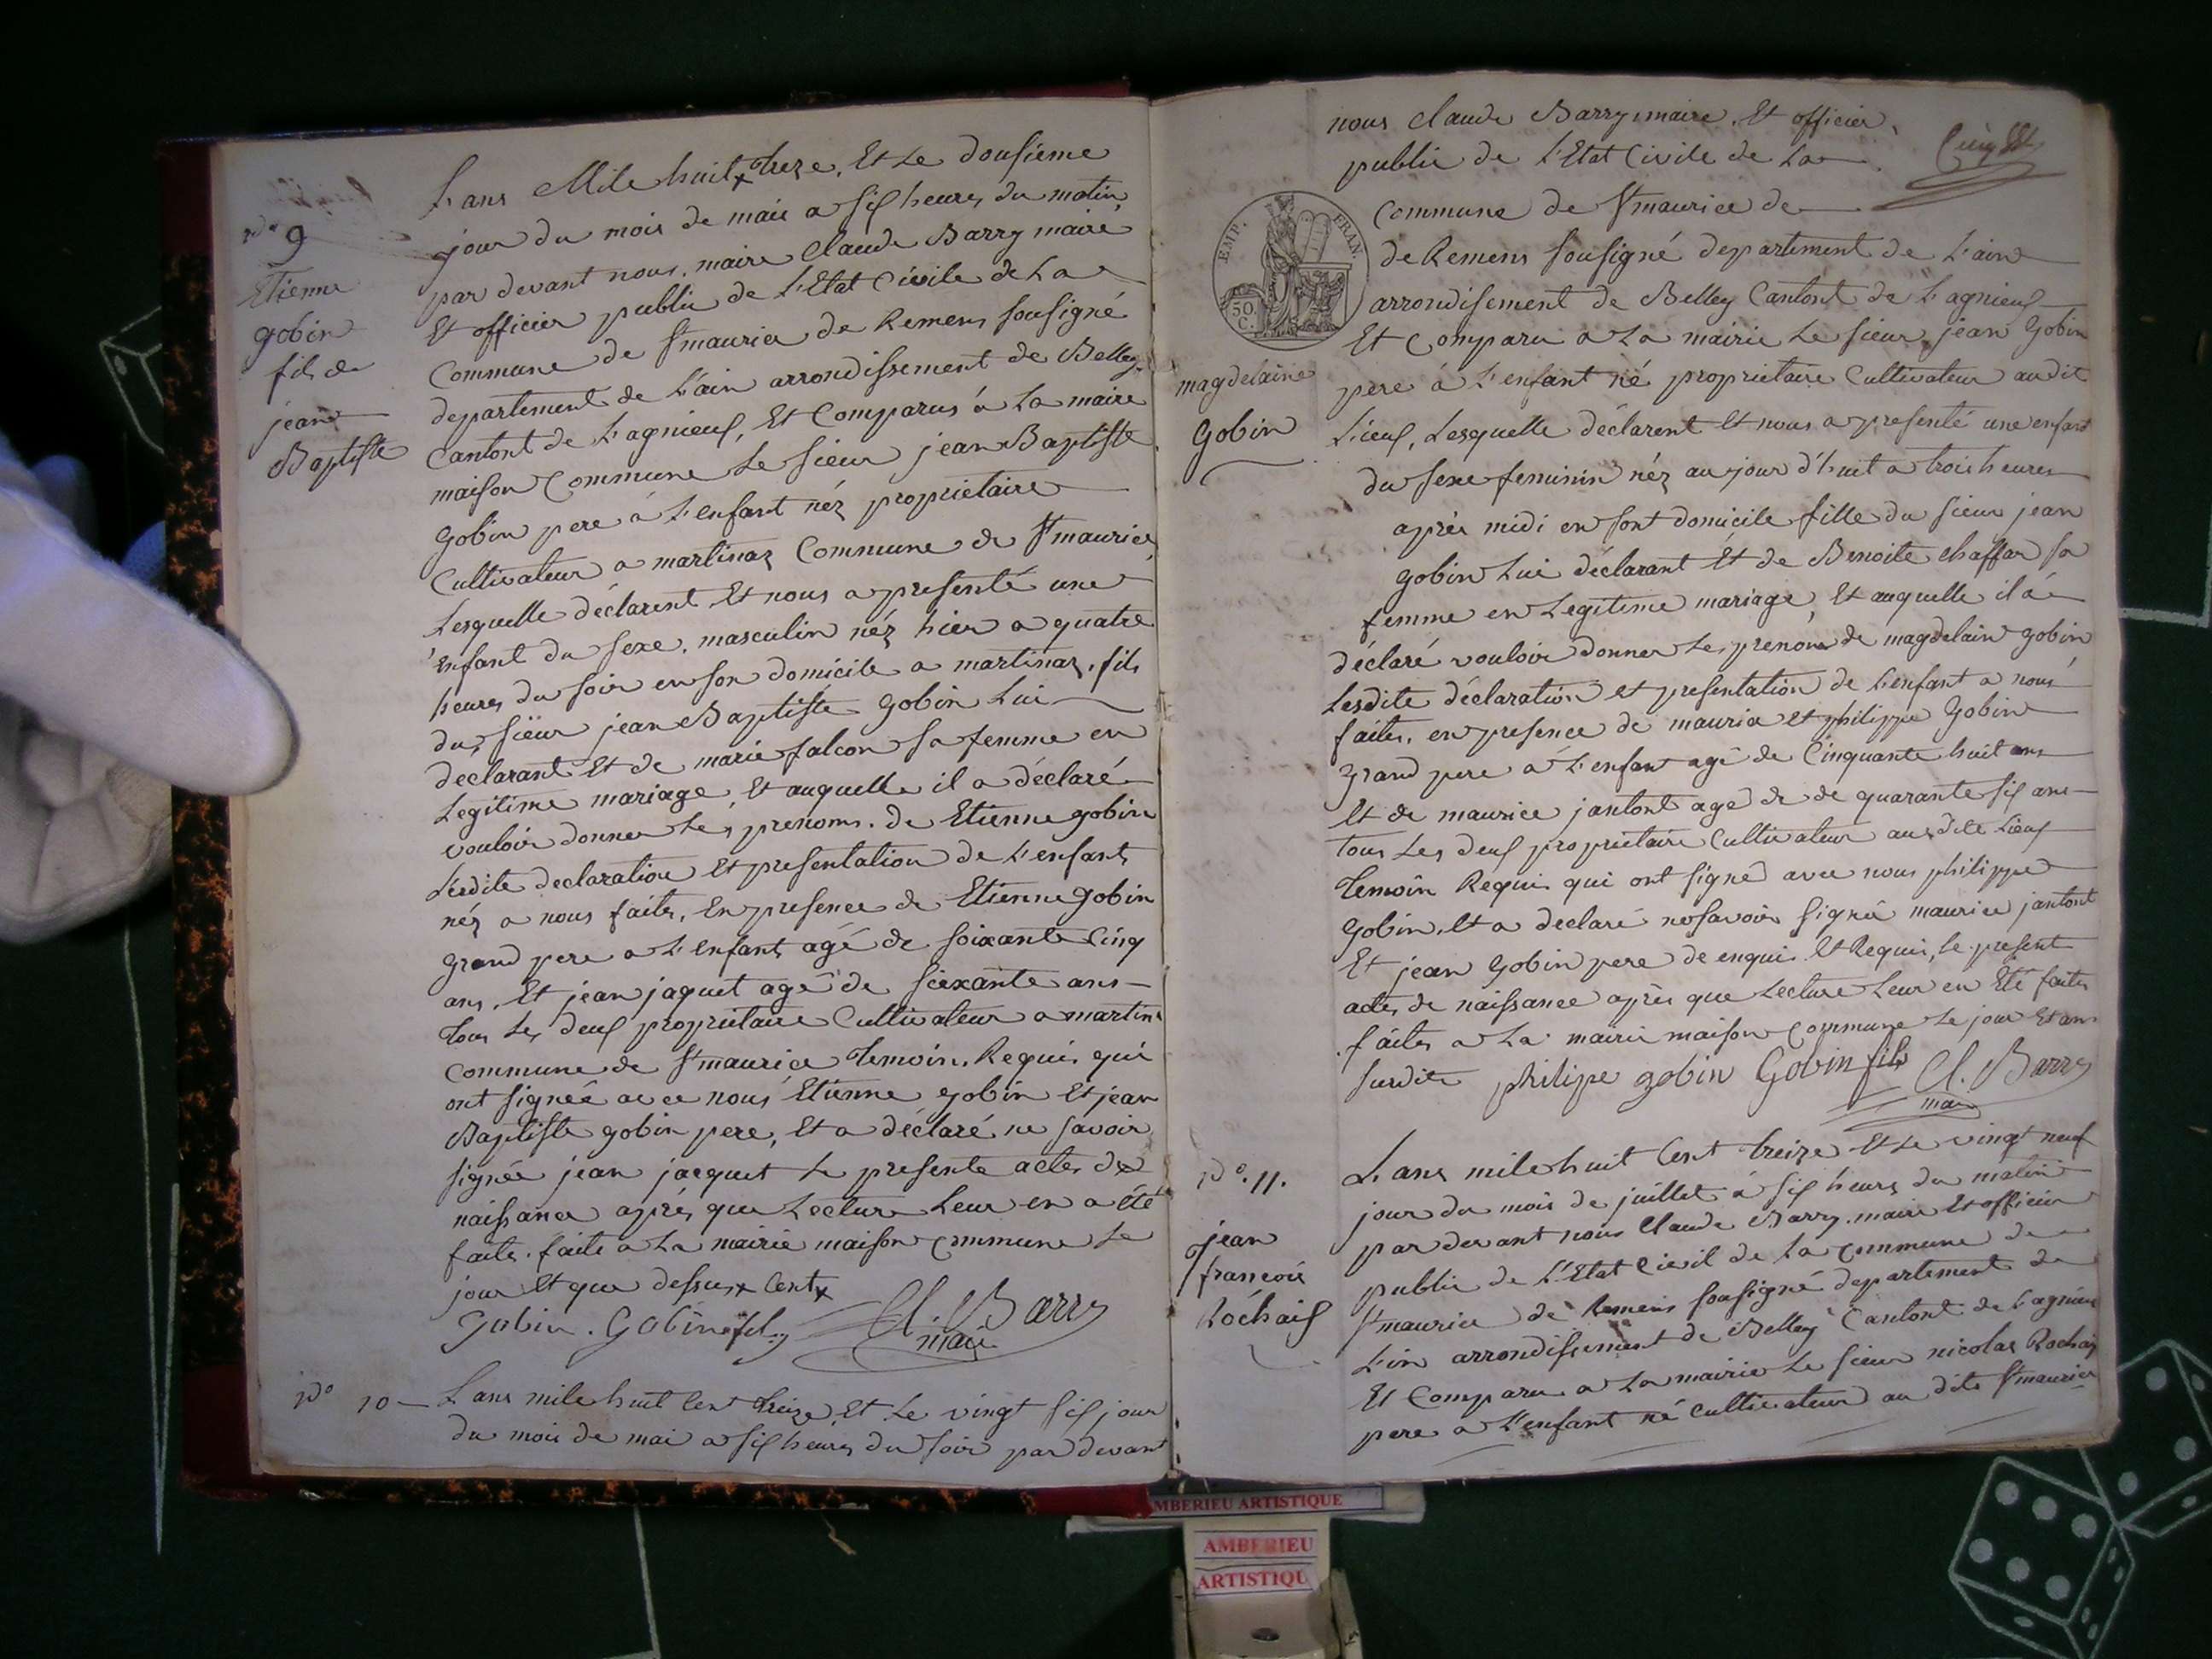 N° 9
Etienne
gobin
fils de
jean
Baptiste
L'ans Mile huit x treze, Et Le dousieme
jour du mois de mais a six heures du matin
par devant nous, maire Claude Barry maire
Et officier public de L'Etat Civile de La
Commune de St maurice de Remens sousigné
departement de L'ain arrondissement de Belley
Cantont de Lagnieux, Et Comparus à La maire
maison Commune Le sieur jean Baptiste
gobin pere à L'enfant néz proprietaire
Cultivateur a martinaz Commune de St maurice
Lesquelle déclarent Et nous a presenté une
Enfant du sexe, masculin néz hier a quatre
heures du soir en son domicile a martinaz, fils
du sieur jean Baptiste gobin Lui
declarant Et de marie falcon sa femme en
Legitime mariage, Et auquelle il a déclaré
vouloir donner Les prenoms de Etienne gobin
Lesdite declaration Et presentation de L'enfant
néz a nous faites, En presence de Etienne gobin
grand pere a L'enfant agé de soixante Cinq
ans, Et jean jaquet agé de soixante ans
tous Les deux proprietaire Cultivateur a martina
Commune de St maurice temoins Requis qui
ont signée avec nous Etienne gobin Et jean
Baptiste gobin pere, Et a déclaré ne savoir
signée jean jacquet Le presente actes de
naissance après que Lecture Leur en a été
faite. faite a La mairie maison Commune Le
jour Et que dessus x Cent x
Gobin . Gobin fils Cl. Barry
maire
N° 10 L'ans mile huit Cent treize, Et Le vingt six jour
du mois de mai a six heures du soir par devant
nous Claude Barry maire, Et officier
public de L'Etat Civile de La
Commune de St maurice de
de Remens sousigné departement de L'ain
EMP. FRAN.
50 C.
arrondisement de Belley Cantont de Lagnieux
Et Comparu a La mairie Le sieur jean Gobin
magdelaine
Gobin
pere à L'enfant né proprietaire Cultivateur audit
Lieux, Lesquelle déclarent Et nous a presenté une enfant
du sexe feminin néz aujour d'huit a trois heures
après midi en sont domicile fille du sieur jean
gobin Lui déclarant Et de Benoite chaffar sa
femme en Legitime mariage, Et auquelle il à
déclaré vouloir donner Les prenom de magdelain gobin
Lesdite déclaration et presentation de L'enfant a nous
faites, en presence de maurice et philippe Gobin
grand pere à L'enfant agé de Cinquante huit ans
Et de maurice jantont agé de de quarante six ans
tous Les deux proprietaire Cultivateur audite Lieux
temoin Requis qui ont signé avec nous philippe
Gobin, Et a declaré ne savoir signé maurice jantont
Et jean Gobin pere de enquis Et Requis, Le present
actes de naissance après que Lecture Leur en Eté faites
faites a La mairie maison Commune Le jour Et an
susdite philipe gobin Gobin fils Cl. Barry
maire
N° 11.
jean
francois
Rochaix
L'ans mile huit Cent treize Et Le vingt neuf
jour du mois de juillet à six heures du matin
par devant nous Claude Barry, maire Et officier
public de L'Etat Civil de La Commune de
St maurice de Remens sousigné departement de
L'in arrondissement de Belley Cantont de Lagnieux
Et Comparu a La mairie Le sieur nicolas Rochaix
pere a L'enfant né Cultivateur au dite St maurice
AMBERIEU ARTISTIQUE
AMBERIEU
ARTISTIQU